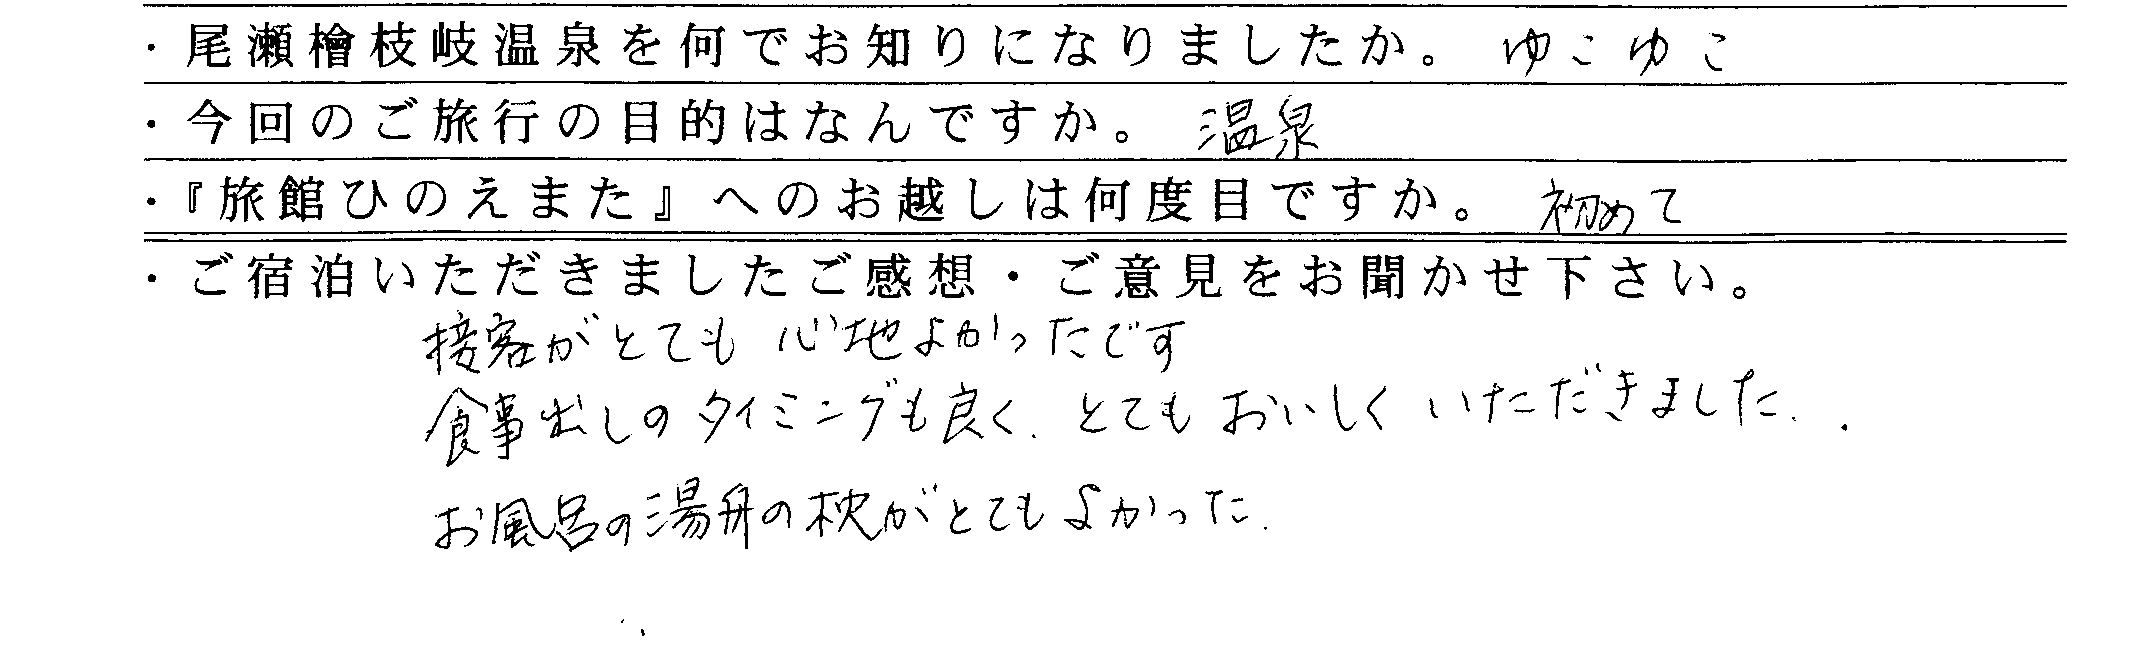 ・尾瀬檜枝岐温泉を何でお知りになりましたか。 ゆこゆこ
・今回のご旅行の目的はなんですか。 温泉
・『旅館ひのえまた』へのお越しは何度目ですか。 初めて
・ご宿泊いただきましたご感想・ご意見をお聞かせ下さい。
接客がとても心地よかったです
食事出しのタイミングも良く、とてもおいしくいただきました。
お風呂の湯舟の枕がとてもよかった。